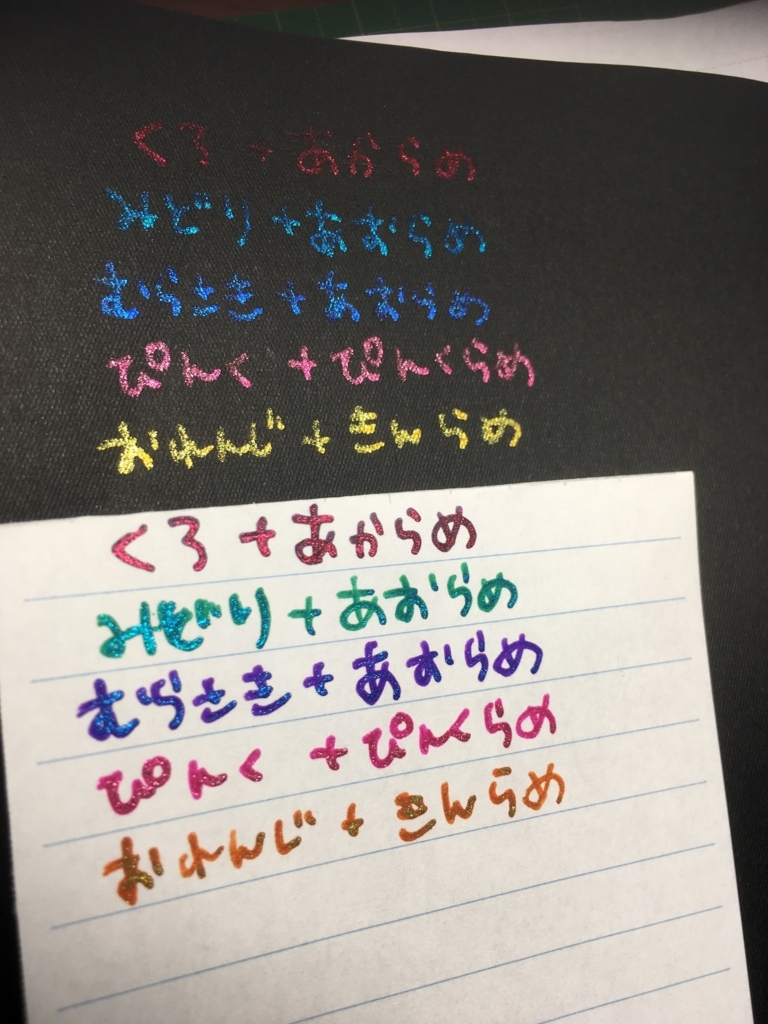 くろ+あからめ
みどり+あおらめ
むらさき+あおらめ
ぴんく+ぴんくらめ
おれんじ+きんらめ
くろ+あからめ
みどり+あおらめ
むらさき+あおらめ
ぴんく+ぴんくらめ
おれんじ+きんらめ